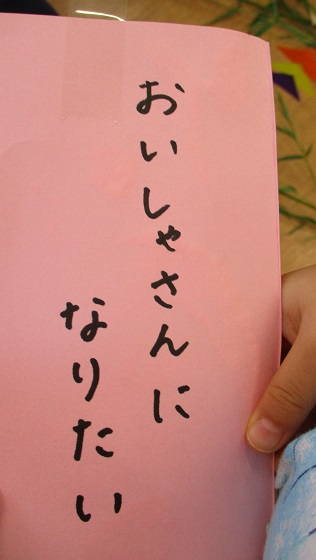 おいしゃさんに
なりたい